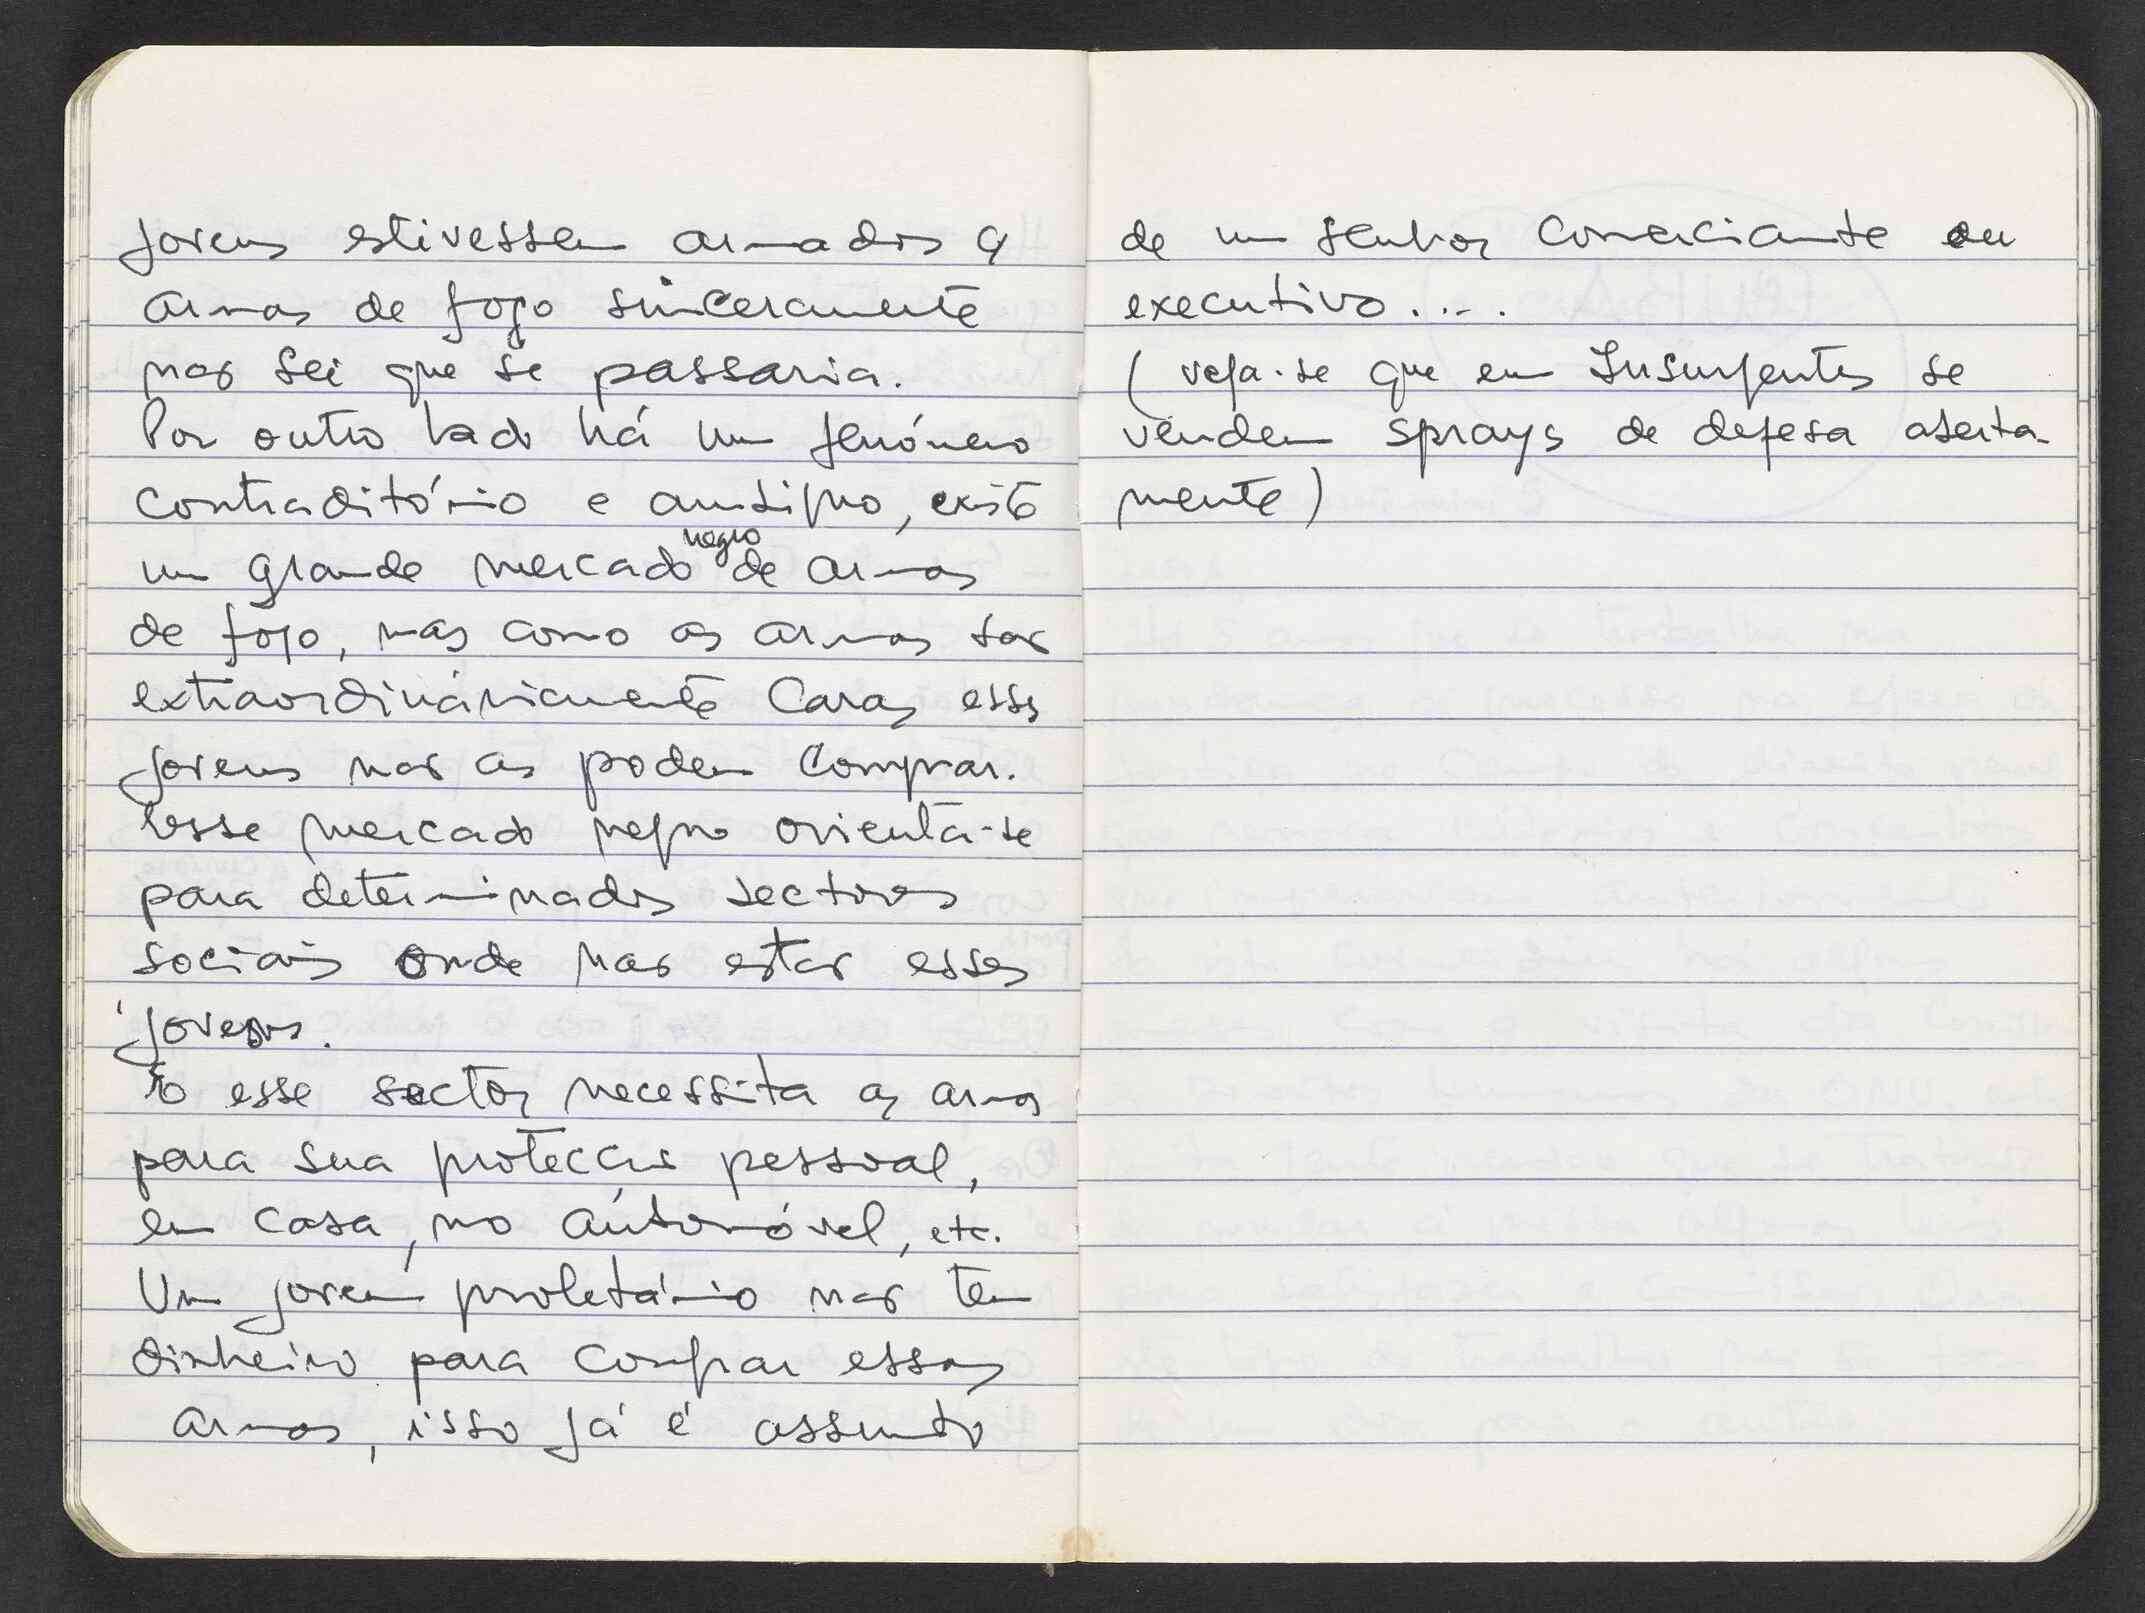 jovens estivessem armados c/
armas de fogo sinceramente
não sei que se passaria.
Por outro lado há um fenómeno
contraditório e ambíguo, existe
um grande mercado negro de armas
de fogo, mas como as armas são
extraordináriamente caras esses
jovens não as podem comprar.
Esse mercado negro orienta-se
para determinados sectores
sociais onde não estão esses
jovens.
E esse sector necessita as armas
para sua protecção pessoal,
em casa, no automóvel, etc.
Um jovem proletário não tem
dinheiro para comprar essas
armas, isso já é assunto
de um senhor comerciante ou
executivo....
(veja-se que em Insurgentes se
vendem sprays de defesa aberta-
mente)